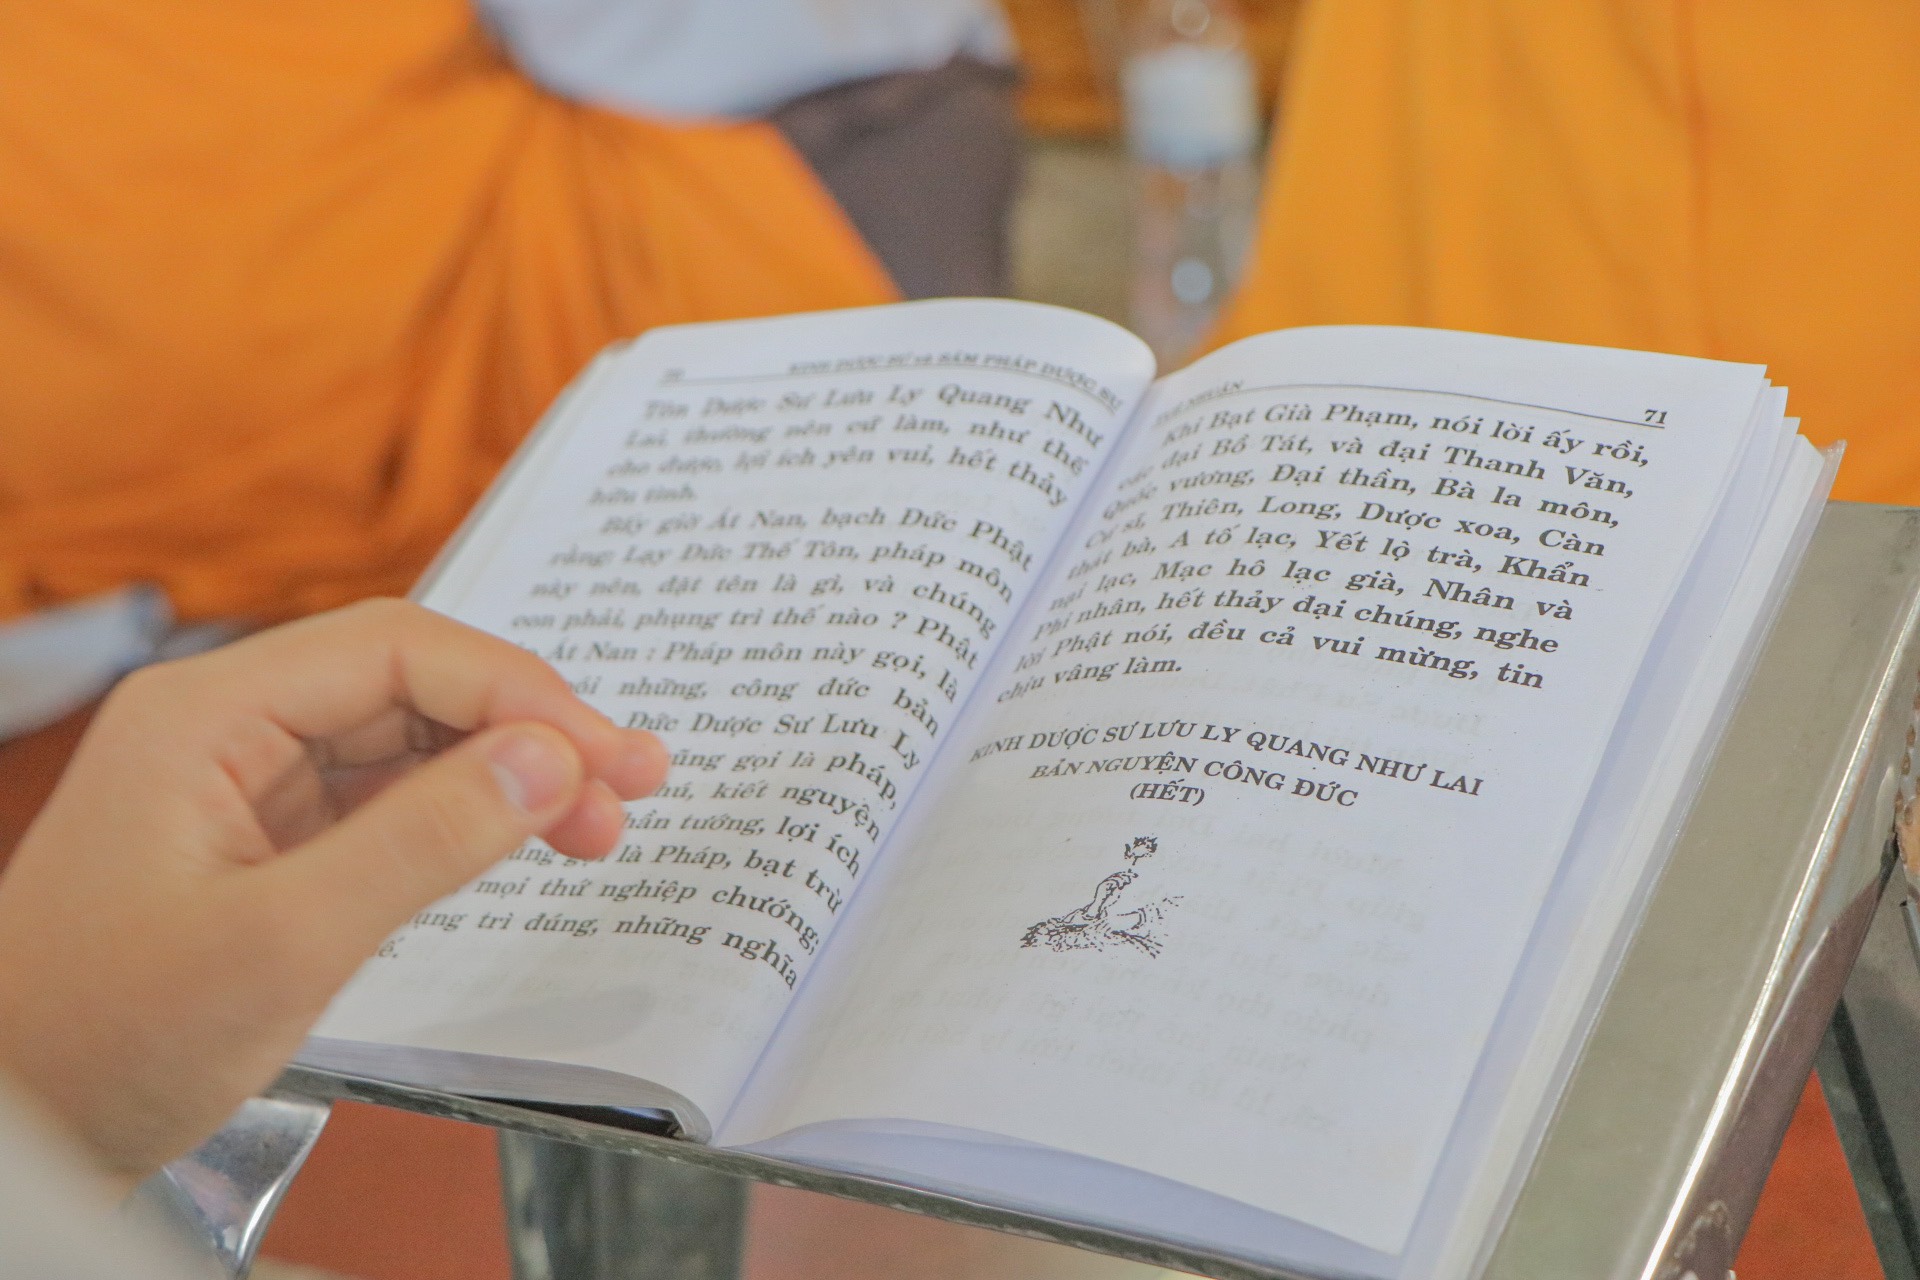 70 KINH DƯỢC SƯ và SÁM PHÁP DƯỢC SƯ
Tôn Dược Sư Lưu Ly Quang Như
Lai, thường nên cứ làm, như thế
cho được, lợi ích yên vui, hết thảy
hữu tình.
Bấy giờ Át Nan, bạch Đức Phật
rằng: Lạy Đức Thế Tôn, pháp môn
này nên, đặt tên là gì, và chúng
con phải, phụng trì thế nào ? Phật
Át Nan : Pháp môn này gọi, là
nói những, công đức bản
Đức Dược Sư Lưu Ly
cũng gọi là pháp,
chú, kiết nguyện
thần tướng, lợi ích
cũng gọi là Pháp, bạt trừ
mọi thứ nghiệp chướng;
trì đúng, những nghĩa
NHUẬN 71
Khi Bạt Già Phạm, nói lời ấy rồi,
các đại Bồ Tát, và đại Thanh Văn,
Quốc vương, Đại thần, Bà la môn,
Cư sĩ, Thiên, Long, Dược xoa, Càn
thát bà, A tố lạc, Yết lộ trà, Khẩn
nại lạc, Mạc hô lạc già, Nhân và
Phi nhân, hết thảy đại chúng, nghe
lời Phật nói, đều cả vui mừng, tin
chịu vâng làm.
KINH DƯỢC SƯ LƯU LY QUANG NHƯ LAI
BẢN NGUYỆN CÔNG ĐỨC
(HẾT)